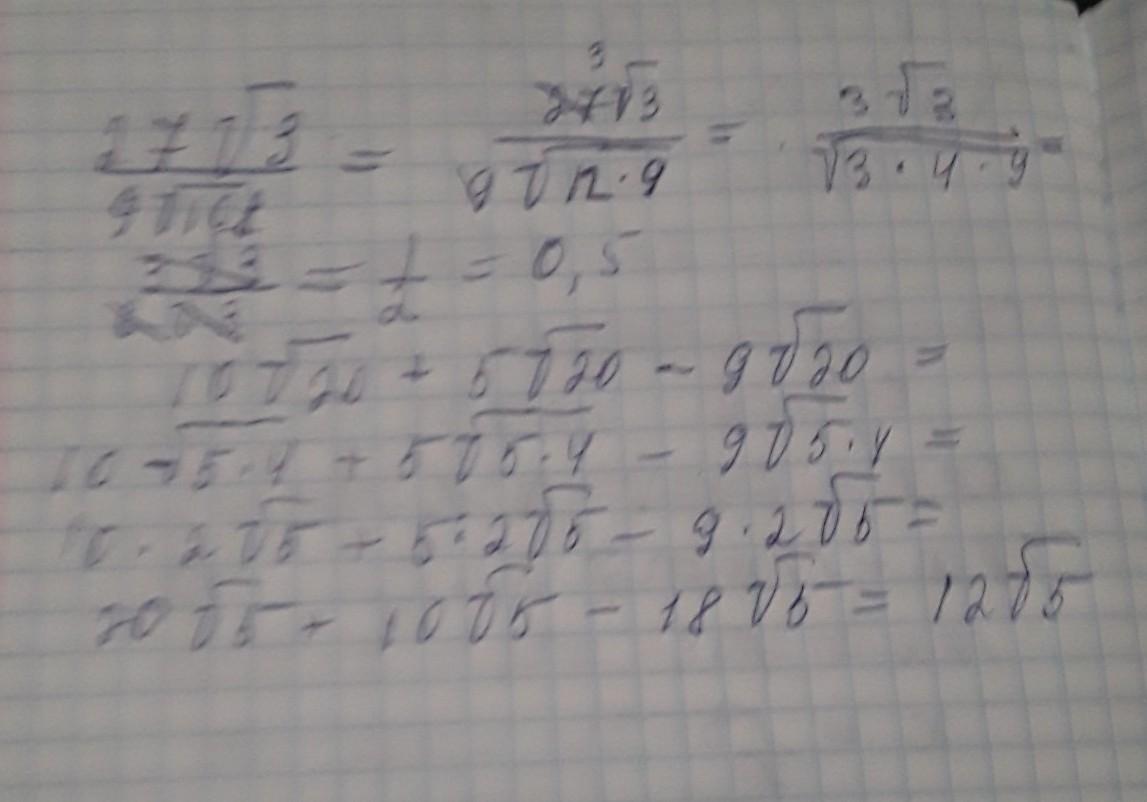 27√3 / 9√108 = 27√3 3 / 9√12·9 = 3√3 / √3·4·9 =
= 1/2 = 0,5
10√20 + 5√20 - 9√20 =
10√5·4 + 5√5·4 - 9√5·4 =
10·2√5 + 5·2√5 - 9·2√5 =
20√5 + 10√5 - 18√5 = 12√5